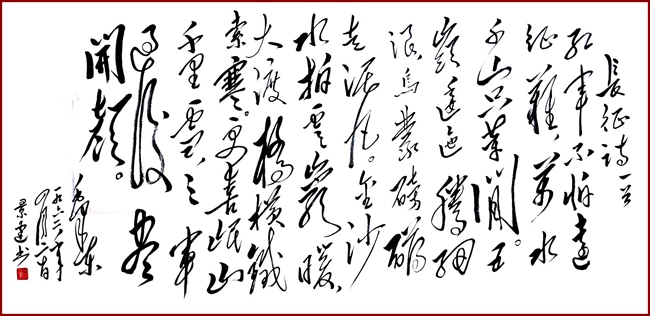 長征詩一首
紅軍不怕遠
征難,萬水
千山只等閒。五
嶺逶迤騰細
浪,烏蒙磅礴
走泥丸。金沙
水拍雲崖暖,
大渡橋橫鐵
索寒。更喜岷山
千里雪,三軍
過後盡
開顏。
毛澤東
一九六二年
四月二十日